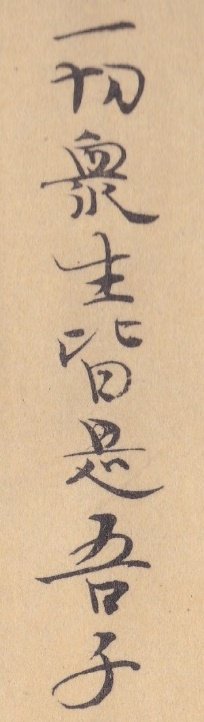 一切衆生皆是吾子